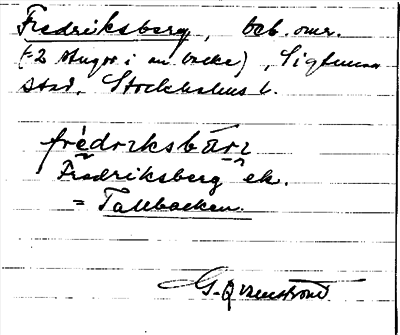 Fredriksberg, beb. omr.
(= 2 stugor i en backe), Sigtuna
stad, Stockholms l.
frédrıksbärı
Fredriksberg ek.
= Tallbacken.
G. Qvarnström